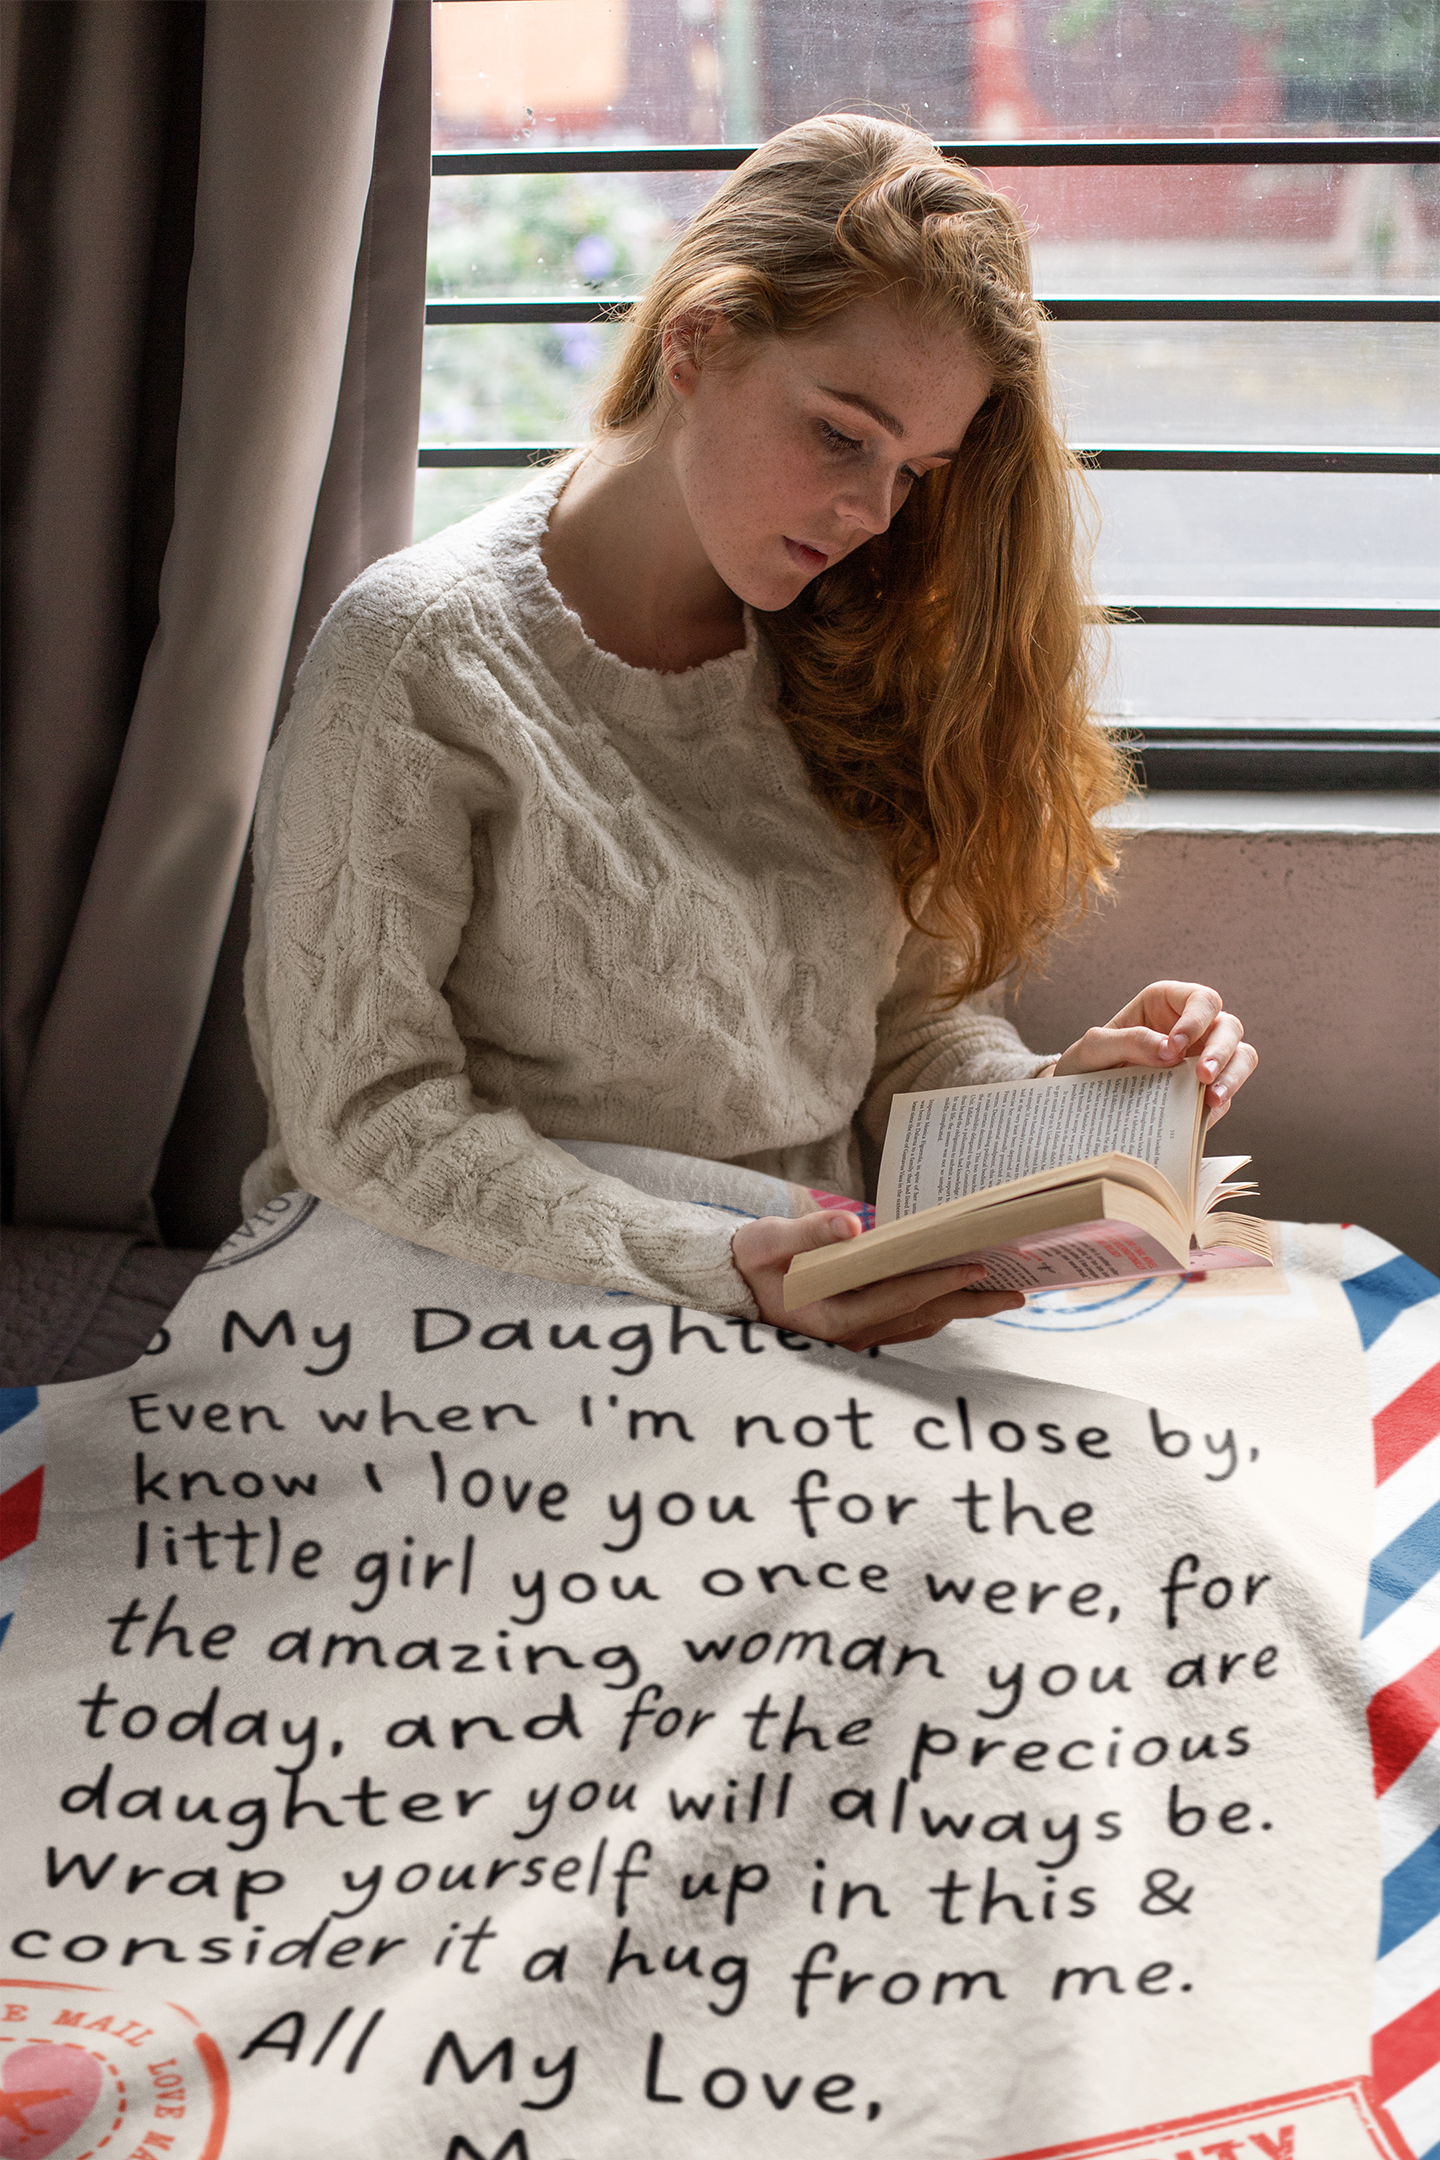 My Daughter,
Even when I'm not close by,
know I love you for the
little girl you once were, for
the amazing woman you are
today, and for the precious
daughter you will always be.
Wrap yourself up in this &
consider it a hug from me.
All My Love,
MAIL LOVE